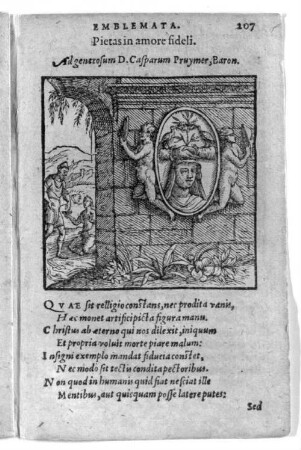 EMBLEMATA. 207
Pietas in amore fideli.
Ad generosum D. Casparum Pruymer, Baron.
QVAE sit relligio constans, nec prodita vanis,
Hæc monet artifici picta figura manu.
Christus ab æterno qui nos dilexit, iniquum
Et propria voluit morte piare malum:
Insigni exemplo mandat fiducia constet,
Nec modo sit tectis condita pectoribus.
Non quod in humanis quid fiat nesciat ille
Mentibus, aut quicquam posse latere putes:
Sed